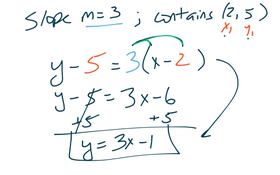 Slope m = 3 ; contains (2, 5)
x₁ y₁
y - 5 = 3(x - 2)
y - 5 = 3x - 6
+5 +5
y = 3x - 1